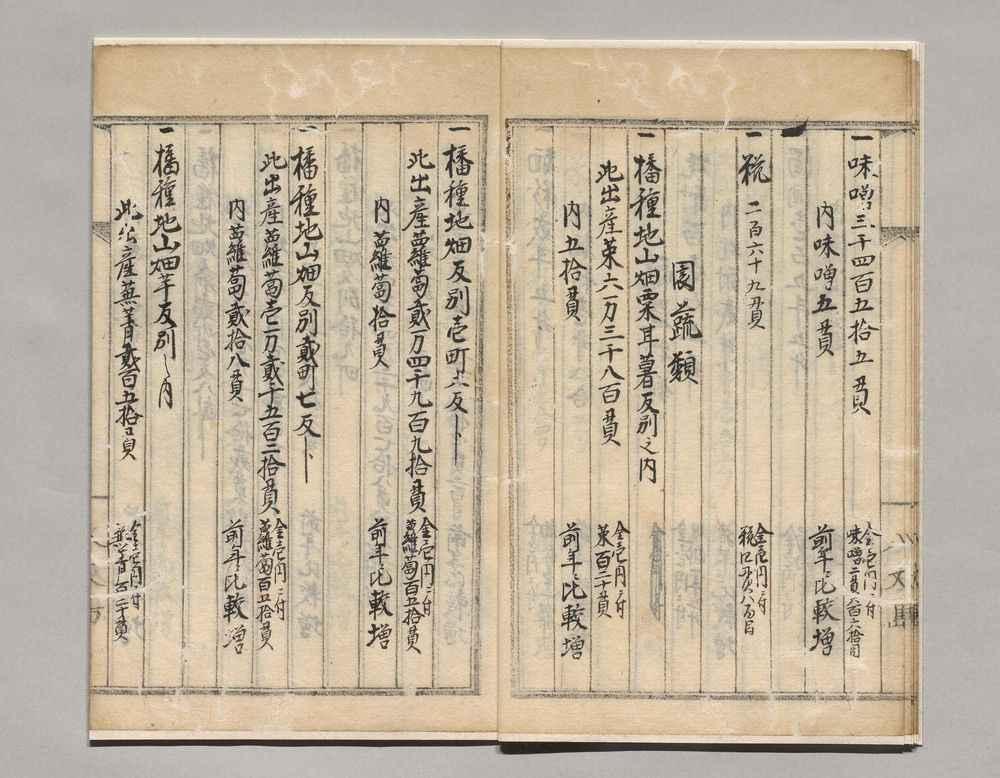 一 味噌三千四百五拾五貫
金壱円ニ付
味噌二貫六百六拾目
内味噌五貫
前年比較増
一 糀 二百六十九貫
金壱円ニ付
園蔬類
一 播種地山畑粟耳薯反別之内
此出産菜六万三千八百貫
金壱円ニ付
菜百二十貫
内五拾貫
前年比較増
一 播種地畑反別壱町 反
此出産蘿蔔貳万四千九百九拾貫
金壱円ニ付
蘿蔔百五拾貫
内蘿蔔拾貫
前年比較増
一 播種地山畑反別貳町七反
此出産蘿蔔壱万貳千五百二拾貫
金壱円ニ付
蘿蔔百五拾貫
内蘿蔔貳拾八貫
前年比較増
一 播種地山畑芋反別之内
此出産蕪菁貳百五拾貫
金壱円ニ付
蕪菁百二十貫